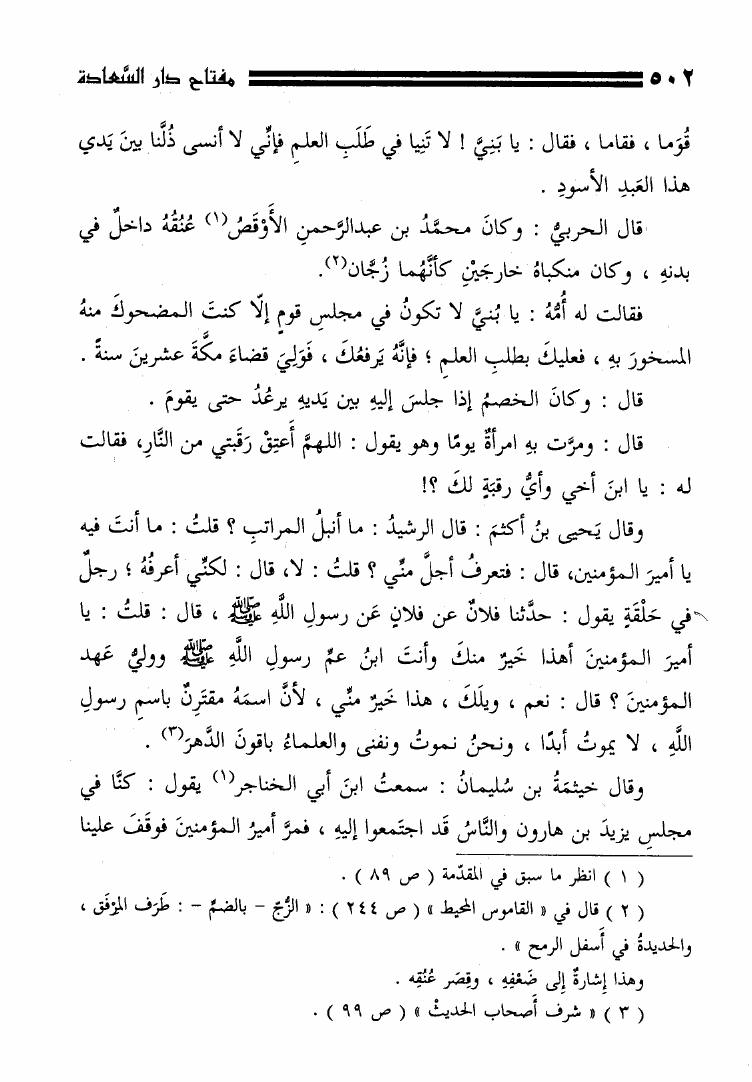 ٥٠٢ مفتاح دار السَّعادة
قُوَما ، فقاما ، فقال : يا بَنِيَّ ! لا تَنِيا في طَلَبِ العلمِ فإنِّي لا أنسى ذُلَّنا بينَ يَدي
هذا العَبدِ الأسودِ .
قال الحربيُّ : وكانَ محمَّدُ بن عبدالرَّحمنِ الأَوْقَصُ(١) عُنُقُهُ داخلٌ في
بدنهِ ، وكان منكباهُ خارجَيْنِ كأنَّهُما زُجَّان(٢).
فقالت له أُمُّهُ : يا بُنيَّ لا تكونُ في مجلسِ قومٍ إلّا كنتَ المضحوكَ منهُ
المسخورَ بهِ ، فعليكَ بطلبِ العلمِ ؛ فإنَّهُ يَرفعُكَ ، فَوَلِيَ قضاءَ مكَّةَ عشرينَ سنةً .
قال : وكانَ الخصمُ إذا جلسَ إليهِ بين يَديهِ يرعُدُ حتى يقومَ .
قال : ومرَّت بهِ امرأةٌ يومًا وهو يقول : اللهمَّ أَعتِقْ رَقَبتي من النَّارِ، فقالت
له : يا ابنَ أخي وأيُّ رقبَةٍ لكَ ؟!
وقال يَحيى بنُ أكثمَ : قال الرشيدُ : ما أنبلُ المراتبِ ؟ قلتُ : ما أنتَ فيه
يا أميرَ المؤمنين، قال : فتعرفُ أجلَّ منِّي ؟ قلتُ : لا، قال : لكنِّي أعرفُهُ ؛ رجلٌ
في حَلْقَةٍ يقول : حدَّثنا فلانٌ عن فلانٍ عَن رسولِ اللَّهِ ﷺ ، قال : قلتُ : يا
أميرَ المؤمنينَ أهذا خَيرٌ منكَ وأنتَ ابنُ عمِّ رسولِ اللَّهِ ﷺ ووليُّ عَهد
المؤمنينَ ؟ قال : نعم ، ويلَكَ ، هذا خَيرٌ منِّي ، لأنَّ اسمَهُ مقتَرِنٌ باسمِ رسولِ
اللَّهِ ، لا يموتُ أبدًا ، ونحنُ نموتُ ونفنى والعلماءُ باقونَ الدَّهرَ(٣) .
وقال خيثمَةُ بن سُليمانُ : سمعتُ ابنَ أبي الخناجر(١) يقول : كنَّا في
مجلسِ يزيدَ بن هارون والنَّاسُ قَد اجتَمعوا إليهِ ، فمرَّ أميرُ المؤمنينَ فوقَفَ علينا
( ١ ) انظر ما سبق في المقدّمة ( ص ٨٩ ) .
( ٢ ) قال في « القاموس المحيط » ( ص ٢٤٤ ) : « الزُّجّ – بالضمّ – : طَرَف المِرْفَق ،
والحديدةُ في أسفل الرمح » .
وهذا إشارةٌ إلى ضَعْفِهِ ، وقِصَر عُنُقِه .
( ٣ ) « شرف أصحاب الحديث » ( ص ٩٩ ) .